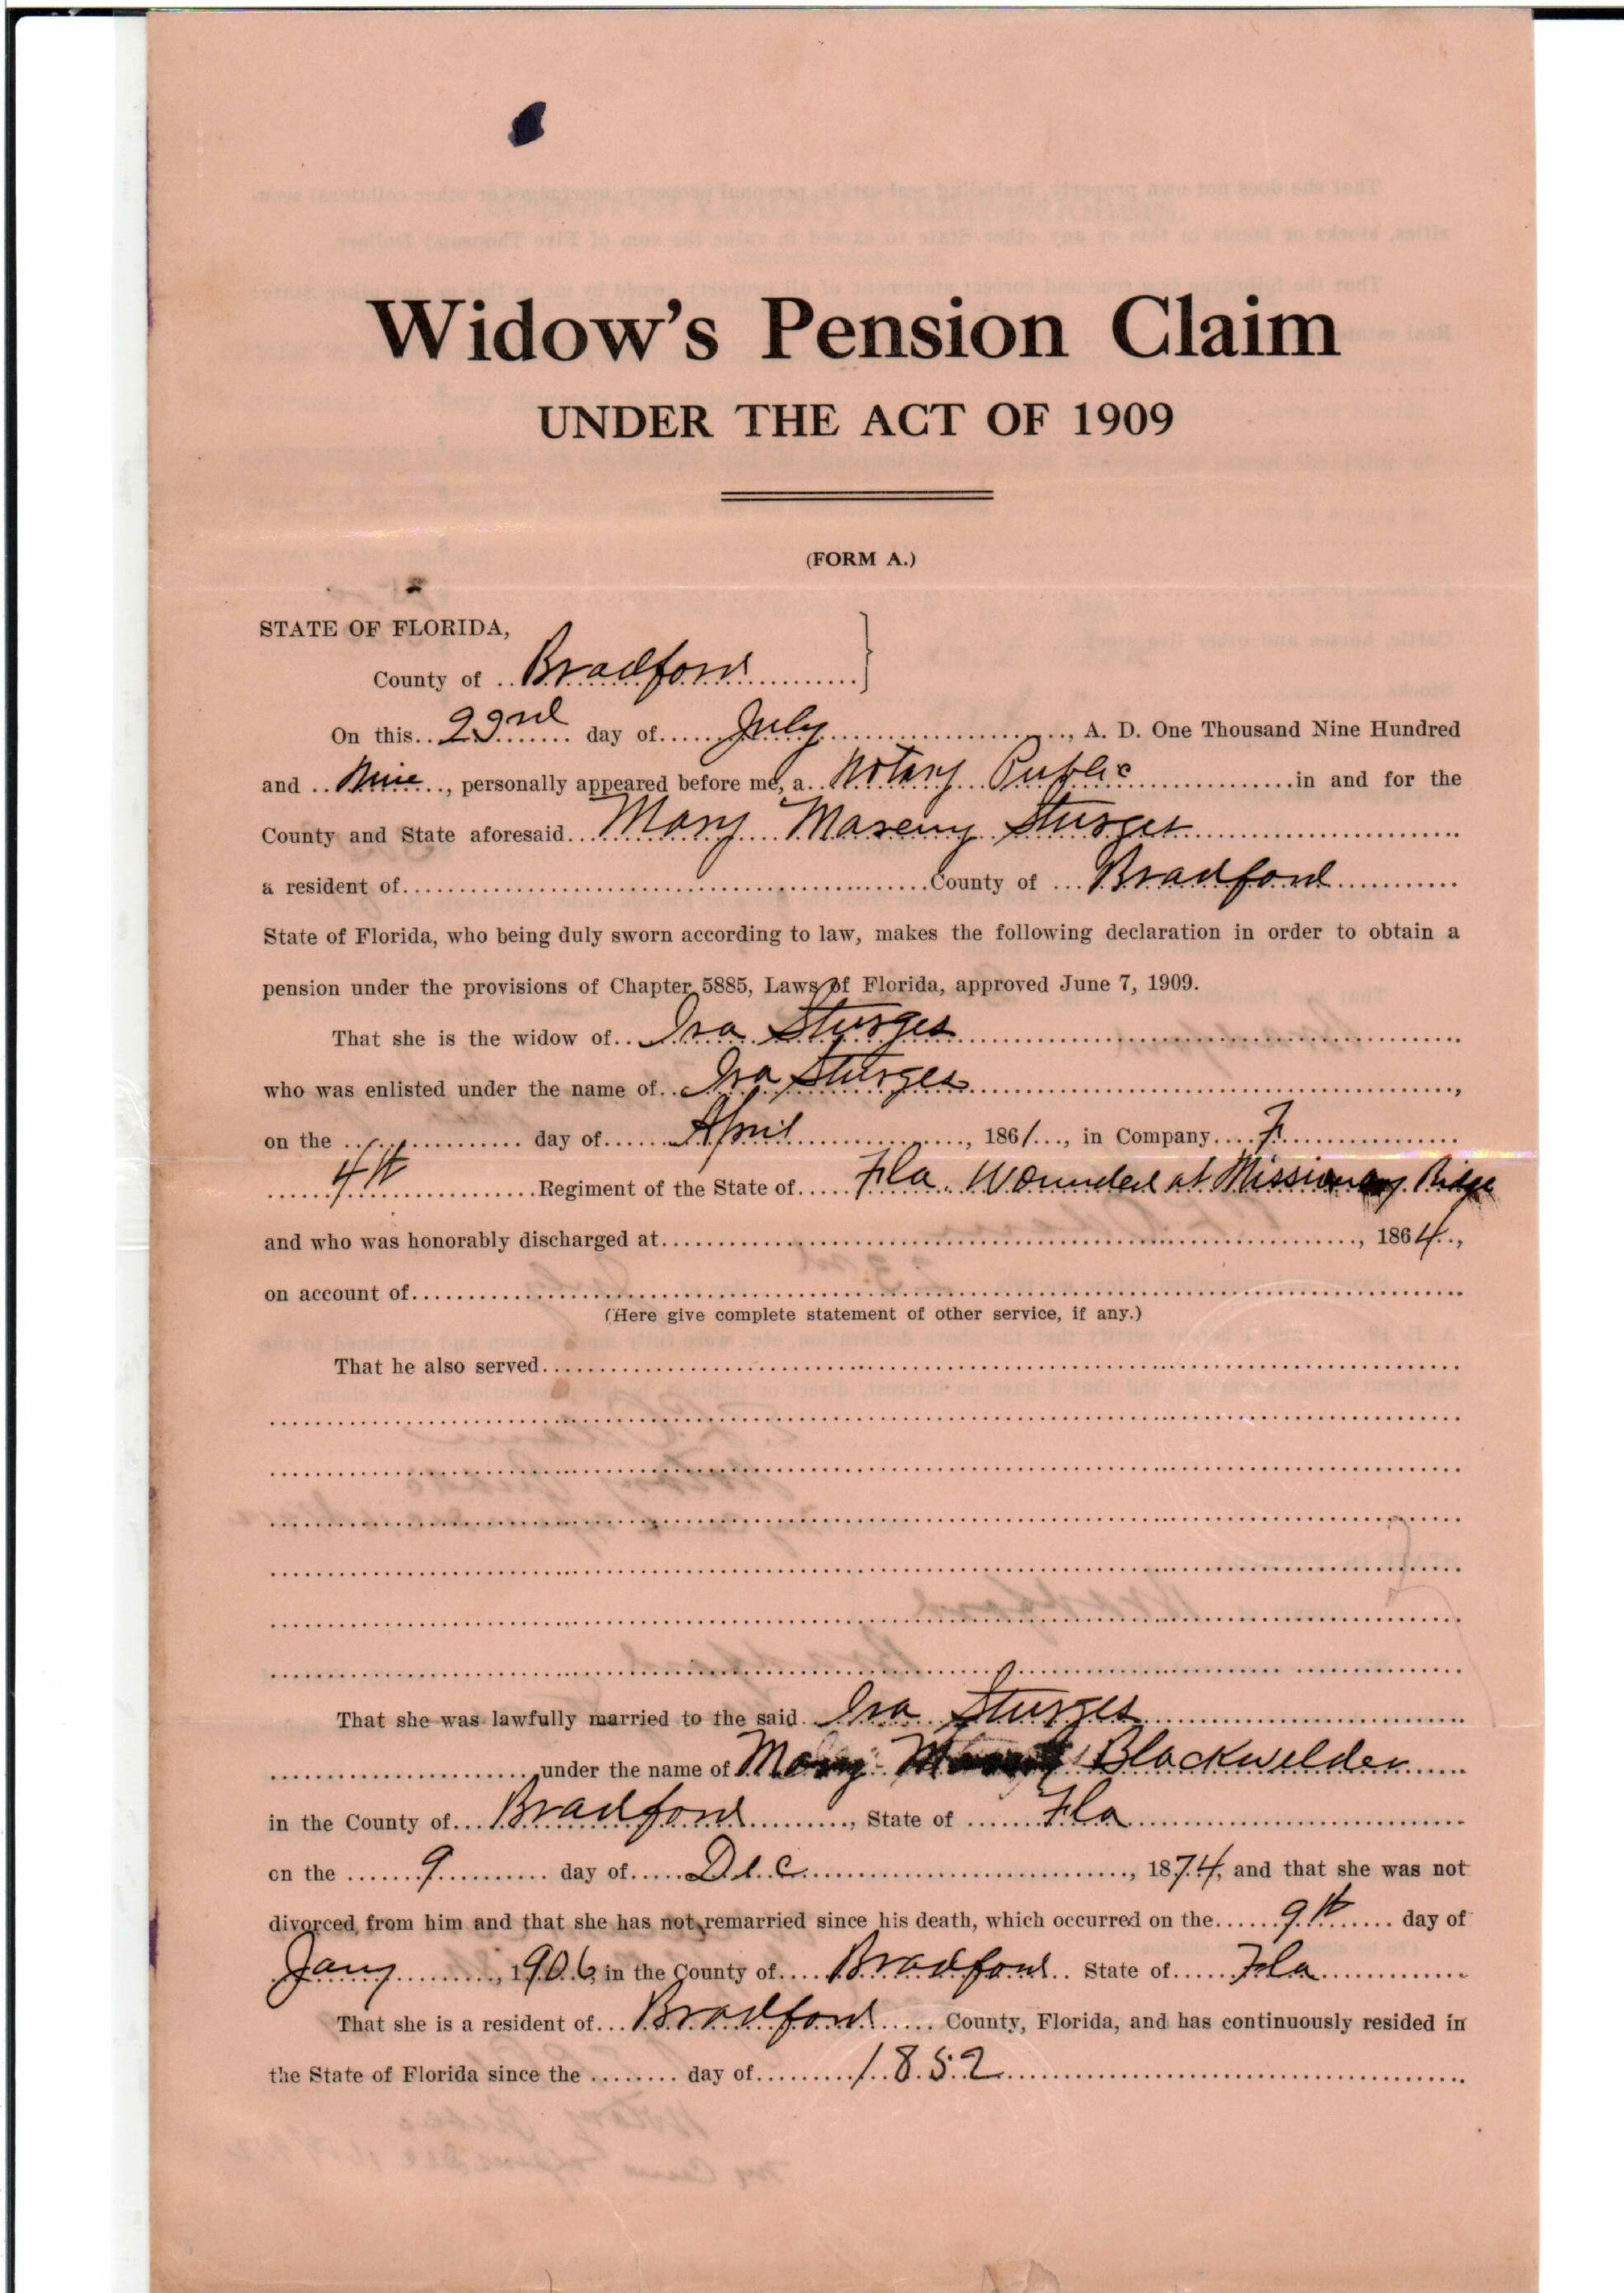 Widow's Pension Claim
UNDER THE ACT OF 1909
(FORM A.)
STATE OF FLORIDA,
County of Bradford
On this 23rd day of July, A. D. One Thousand Nine Hundred
and Nine, personally appeared before me, a Notary Public in and for the
County and State aforesaid Mary Sturges
a resident of County of Bradford
State of Florida, who being duly sworn according to law, makes the following declaration in order to obtain a
pension under the provisions of Chapter 5885, Laws of Florida, approved June 7, 1909.
That she is the widow of Ira Sturges
who was enlisted under the name of Ira Sturges,
on the day of April, 1861, in Company F
4th Regiment of the State of Fla. Wounded at Missionary Ridge
and who was honorably discharged at, 1864,
on account of
(Here give complete statement of other service, if any.)
That he also served
That she was lawfully married to the said Ira Sturges
under the name of Mary Blackwelder
in the County of Bradford, State of Fla
on the 9 day of Dec, 1874, and that she was not
divorced from him and that she has not remarried since his death, which occurred on the 9th day of
Jany, 1906, in the County of Bradford State of Fla
That she is a resident of Bradford County, Florida, and has continuously resided in
the State of Florida since the day of 1852